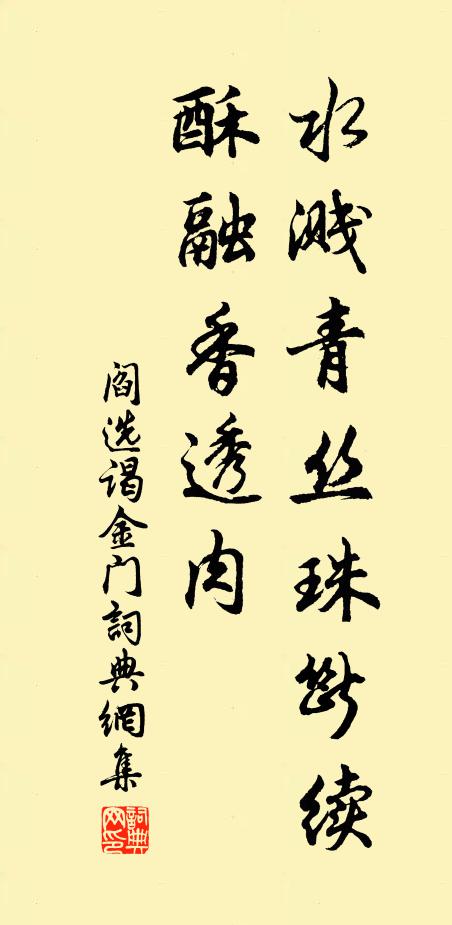 水溅青丝珠断续
酥融香透肉
阎选谒金门詞典網集
詞典网印